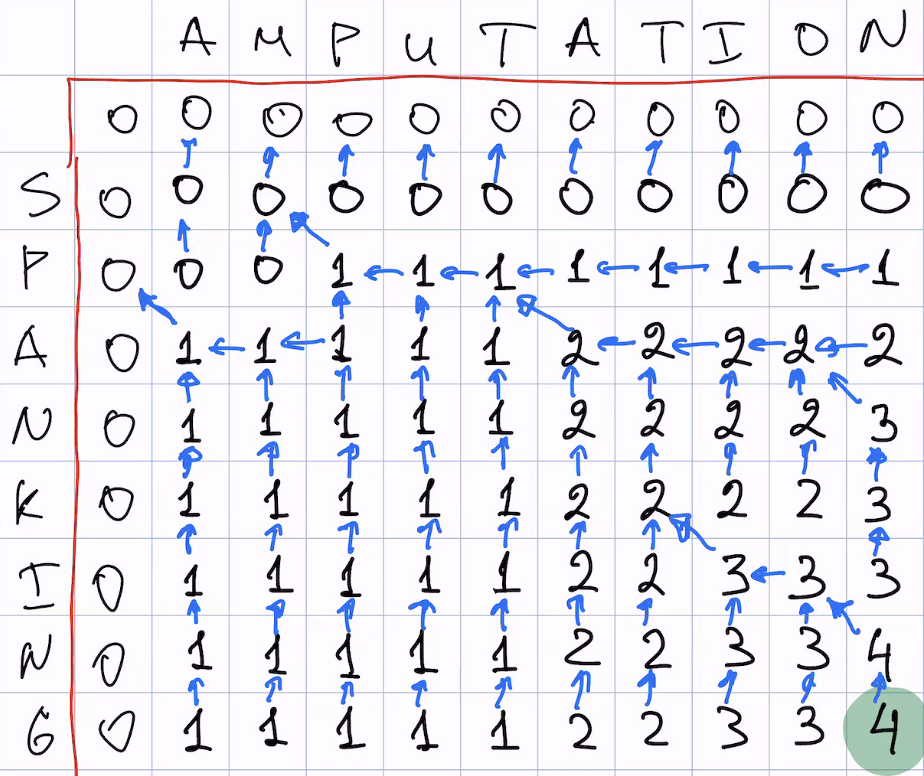 A M P U T A T I O N
0 0 0 0 0 0 0 0 0 0 0
S 0 0 0 0 0 0 0 0 0 0 0
P 0 0 0 1 1 1 1 1 1 1 1
A 0 1 1 1 1 1 2 2 2 2 2
N 0 1 1 1 1 1 2 2 2 2 3
K 0 1 1 1 1 1 2 2 2 2 3
I 0 1 1 1 1 1 2 2 3 3 3
N 0 1 1 1 1 1 2 2 3 3 4
G 0 1 1 1 1 1 2 2 3 3 4